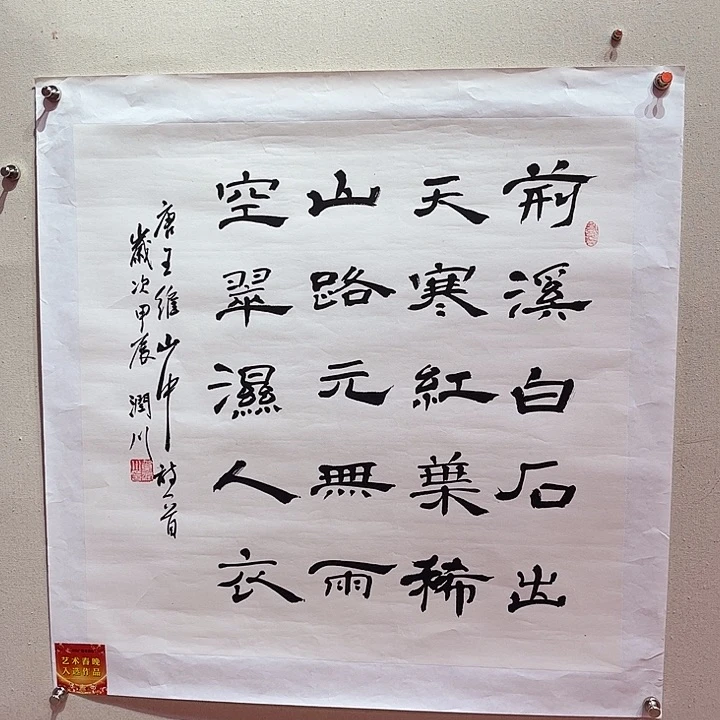 荆溪白石出
天寒紅葉稀
山路元無雨
空翠濕人衣
唐王維山中詩一首
歲次甲辰 潤川
艺术春晚
入选作品